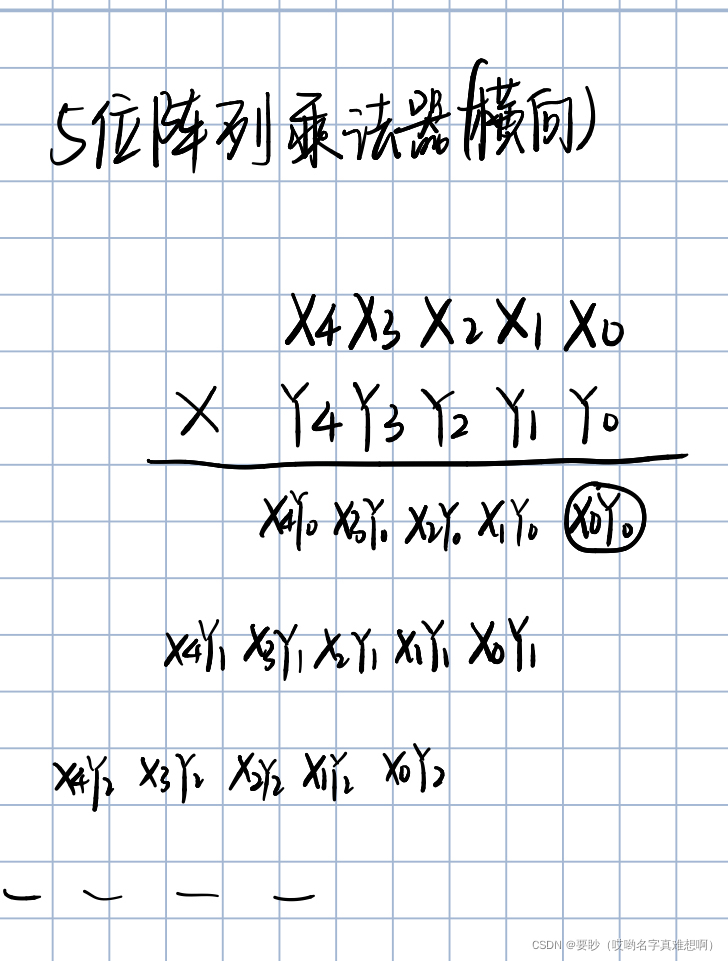 5位阵列乘法器(横向)
X4 X3 X2 X1 X0
X Y4 Y3 Y2 Y1 Y0
X4Y0 X3Y0 X2Y0 X1Y0 X0Y0
X4Y1 X3Y1 X2Y1 X1Y1 X0Y1
X4Y2 X3Y2 X2Y2 X1Y2 X0Y2
— — — —
CSDN @要眇（哎哟名字真难想啊）